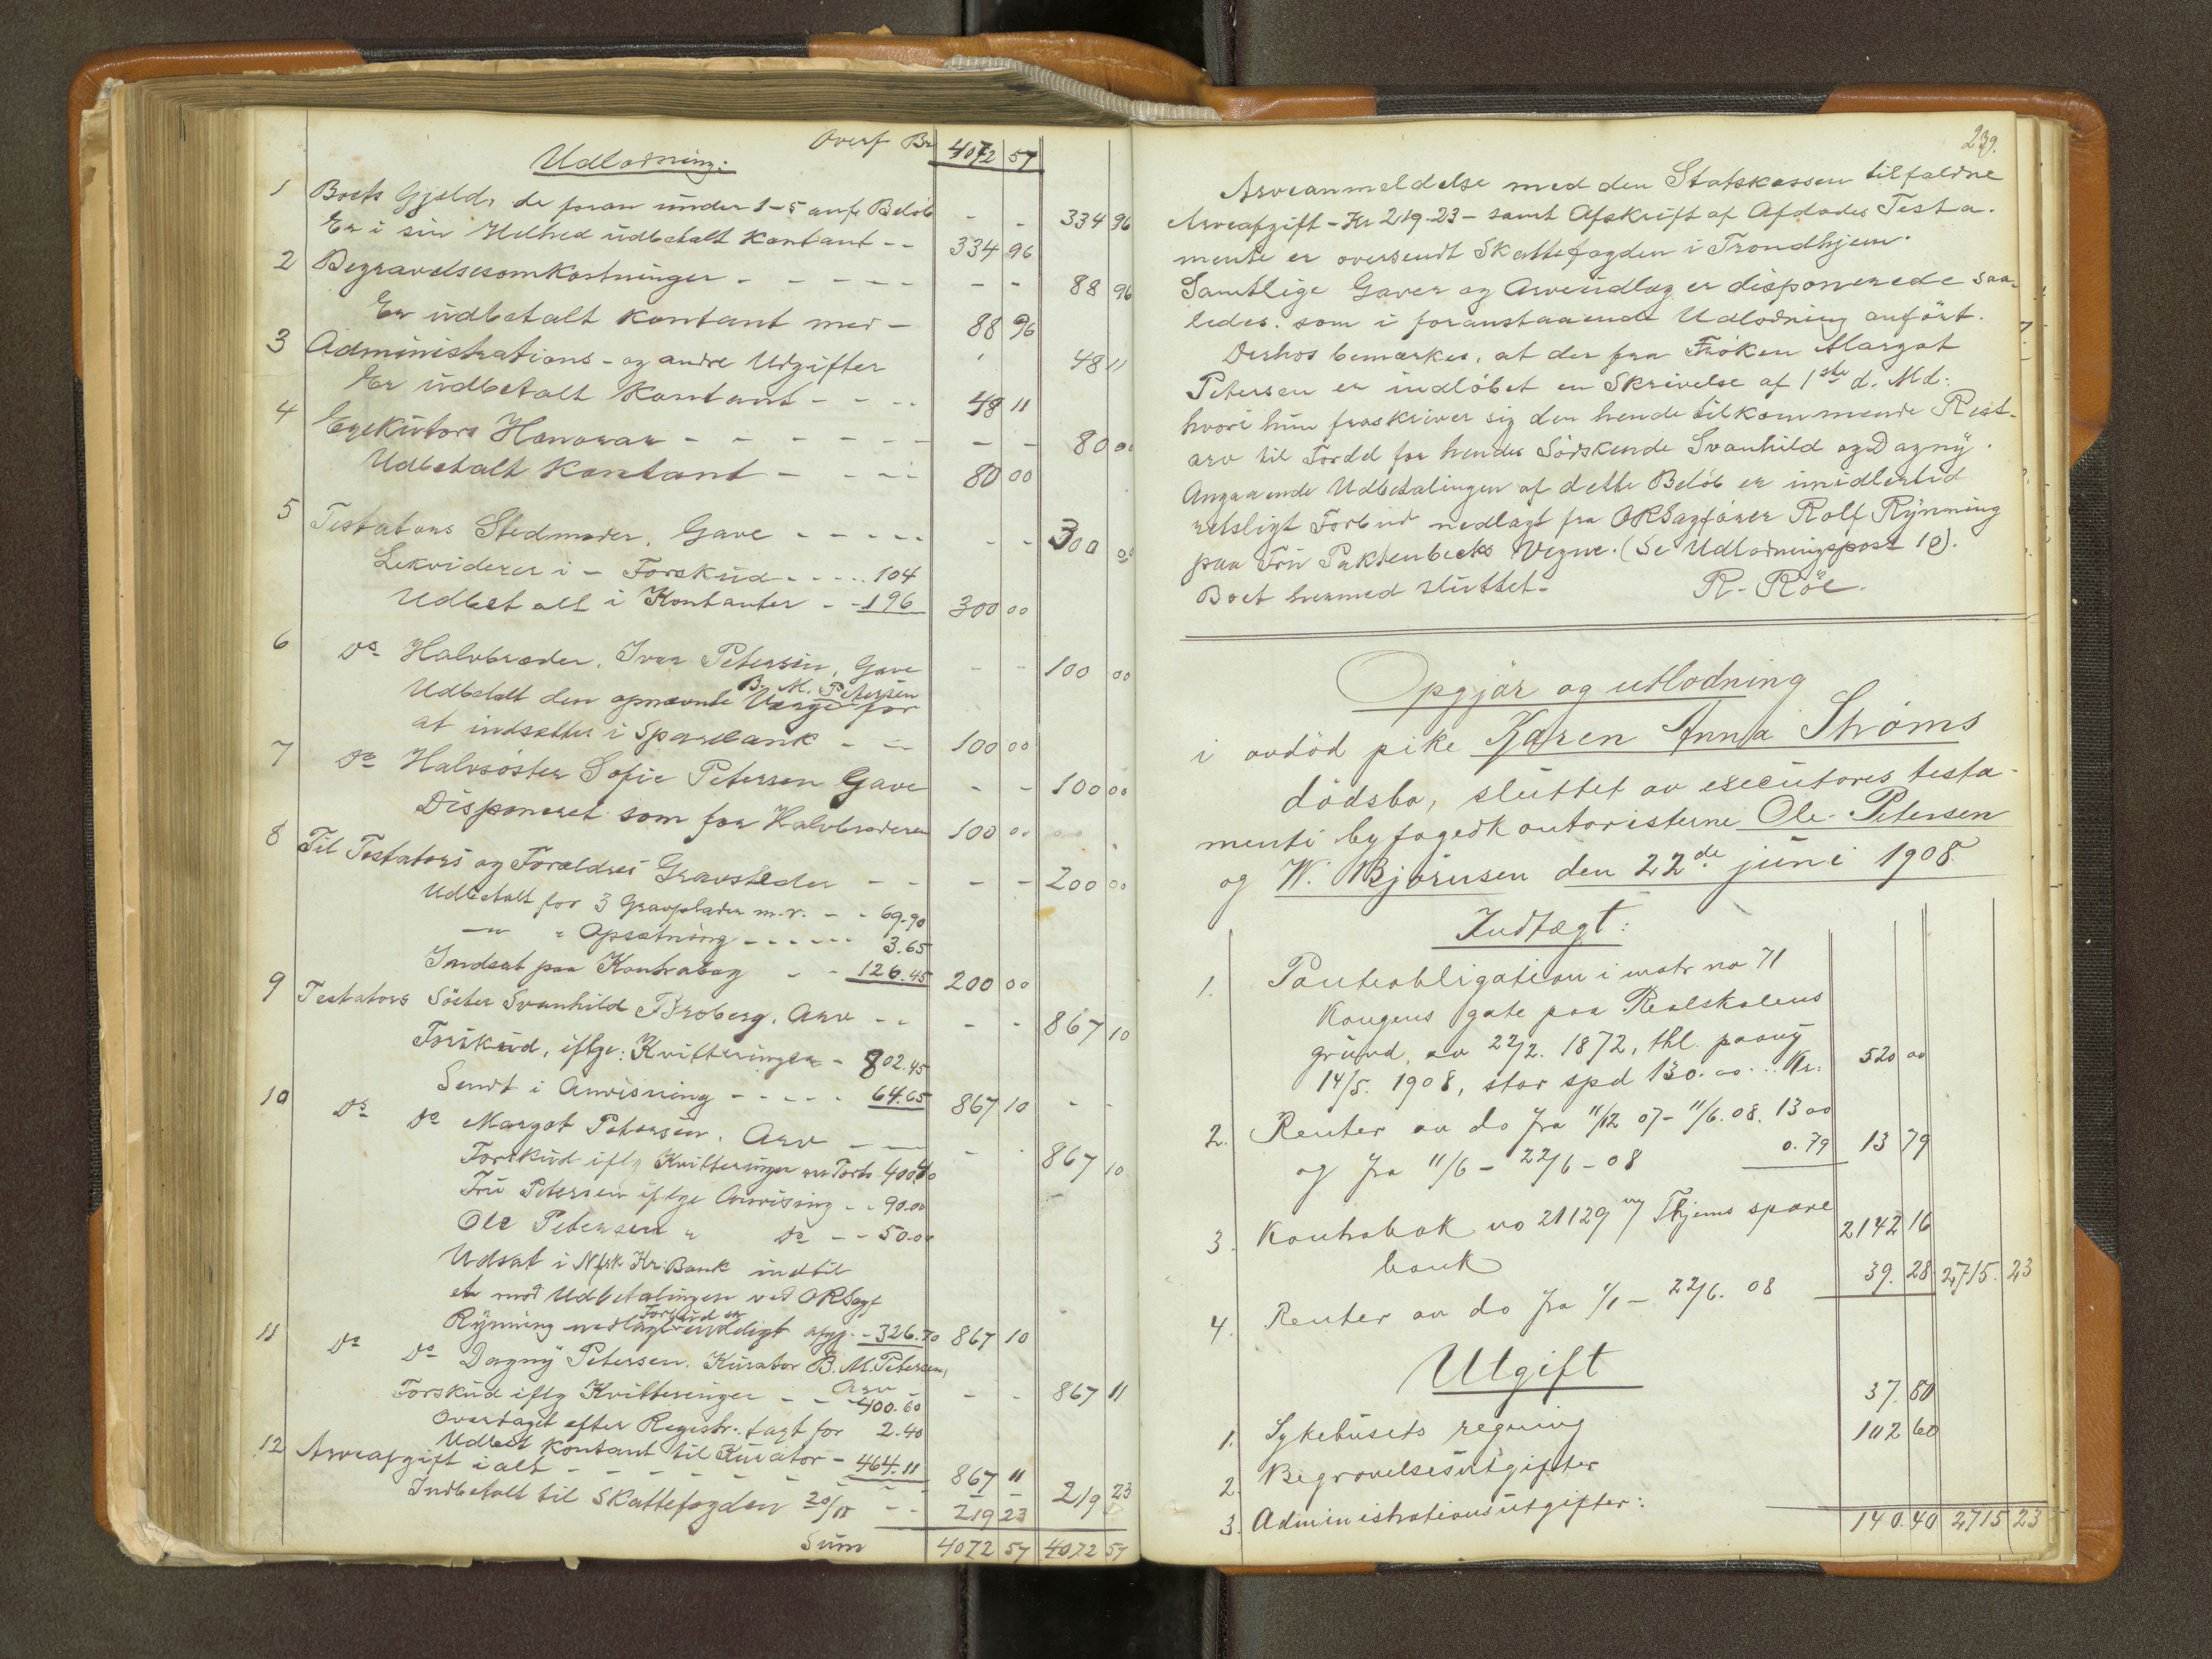 Overf Br 4072 57
Udlodning:
1 Boets Gjeld, de foran under 1-5 anf. Beløb - - 334 96
Er i sin Helhed udbetalt kontant - - 334 96
2 Begravelsesomkostninger - - - - - - - 88 96
Er udbetalt kontant med - 88 96
3 Administrations- og andre Udgifter 48 11
Er udbetalt kontant - - - 48 11
4 Exekutors Honorar - - - - - - - - 80 00
Udbetalt Kontant - - - - 80 00
5 Testators Stedmoder, Gave - - - - - - - 300 00
Lekviderer i - Forskud - - - - 104
Udbetalt i Kontanter - - 196 300 00
6 Do Halvbroder, Ivar Petersen, Gave - - 100 00
B. M. Petersen
Udbetalt den opnævnte Værge for
at indsættes i Sparebank - - 100 00
7 Do Halvsøster Sofie Petersen Gave - - 100 00
Disponeret som for Halvbroderen 100 00
8 Til Testators og Forældres Gravsteder - - - - 200 00
Udbetalt for 3 Gravplader m.v. - - 69.90
-"- " Opsætning - - - - - - 3.65
Indsat paa Kontrabog - - 126.45 200 00
9 Testators Søster Svanhild Broberg. Arv - - - - 867 10
Forskud, iflge: Kvitteringer - 802.45
Sendt i Anvisning - - - - - 64.65 867 10 - -
10 Do Do Margot Petersen. Arv - - - - 867 10
Forskud iflg Kvitteringer 400.40
Fru Petersen iflge Anvisning - - 90.00
Ole Petersen " Do - - 50.00
Udsat i Nfsk. Kr. Bank indtil
et mod Udbetalingen ved ORSagf
Forbud er
Rynning nedlagt endeligt afgj. - 326.70 867 10
11 Do Do Dagny Petersen. Kurator B. M. Petersen,
Arv - - - 867 11
Forskud iflg Kvitteringer - - - 400.60
Overtaget efter Registr. tagt for 2.40
Udbet kontant til Kurator - 464.11 867 11
12 Arveafgift ialt - - - - - - - - - - 219 23
Indbetalt til Skattefogden 20/11 - - 219 23
Sum 4072 57 4072 57
239.
Arveanmeldelse med den Statskassen tilfaldne
Arveafgift - Kr 219.23 - samt Afskrift af Afdødes Testa-
mente er oversendt Skattefogden i Trondhjem.
Samtlige Gaver og Arveudlæg er disponerede saa-
ledes. som i foranstaaende Udlodning anført.
Derhos bemærkes, at der fra Frøken Margot
Petersen er indløbet en Skrivelse af 1ste d. Md.
hvori hun fraskriver sig den hende tilkommende Rest-
arv til Fordel for hendes Søskende Svanhild og Dagny.
Angaaende Udbetalingen af dette Beløb er imidlertid
retsligt Forbud nedlagt fra ORSagfører Rolf Rynning
paa Fru Paktenbecks Vegne. (Se Udlodningspost 10).
Boet hermed sluttet. R. Röe.
Opgjør og utlodning
i avdød pike Karen Anna Strøms
dødsbo, sluttet av executores testa-
menti byfogedkontoristerne Ole Petersen
og W. Bjørnsen den 22de juni 1908.
Indtægt:
1. Panteobligation i matr no 71
Kongens gate paa Realskolens
grund, av 22/2. 1872, thl. paany
14/5. 1908, stor spd 130.00... Kr. 520 00
2. Renter av do fra 11/12 07 - 11/6. 08. 13 00
og fra 11/6 - 22/6 - 08 0.79 13 79
3. Kontrabok no 21129 m/ Thjems spare
bank 2142 16
4. Renter av do fra 1/1 - 22/6. 08 39. 28 2715. 23
Utgift
1. Sykehusets regning 37. 80
2. Begravelsesutgifter 102 60
3. Administrationsutgifter:
140.40 2715 23